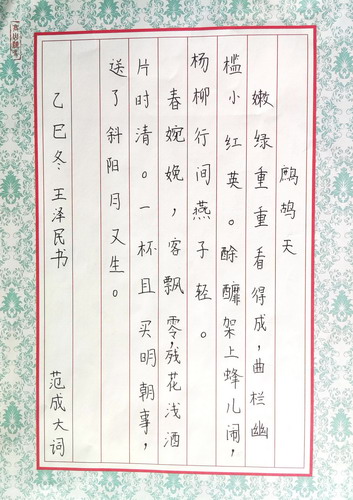 鹧鸪天
嫩绿重重看得成，曲栏幽
槛小红英。酴醿架上蜂儿闹，
杨柳行间燕子轻。
春婉娩，客飘零，残花浅酒
片时清。一杯且买明朝事，
送了斜阳月又生。
乙巳冬.王泽民书 范成大词